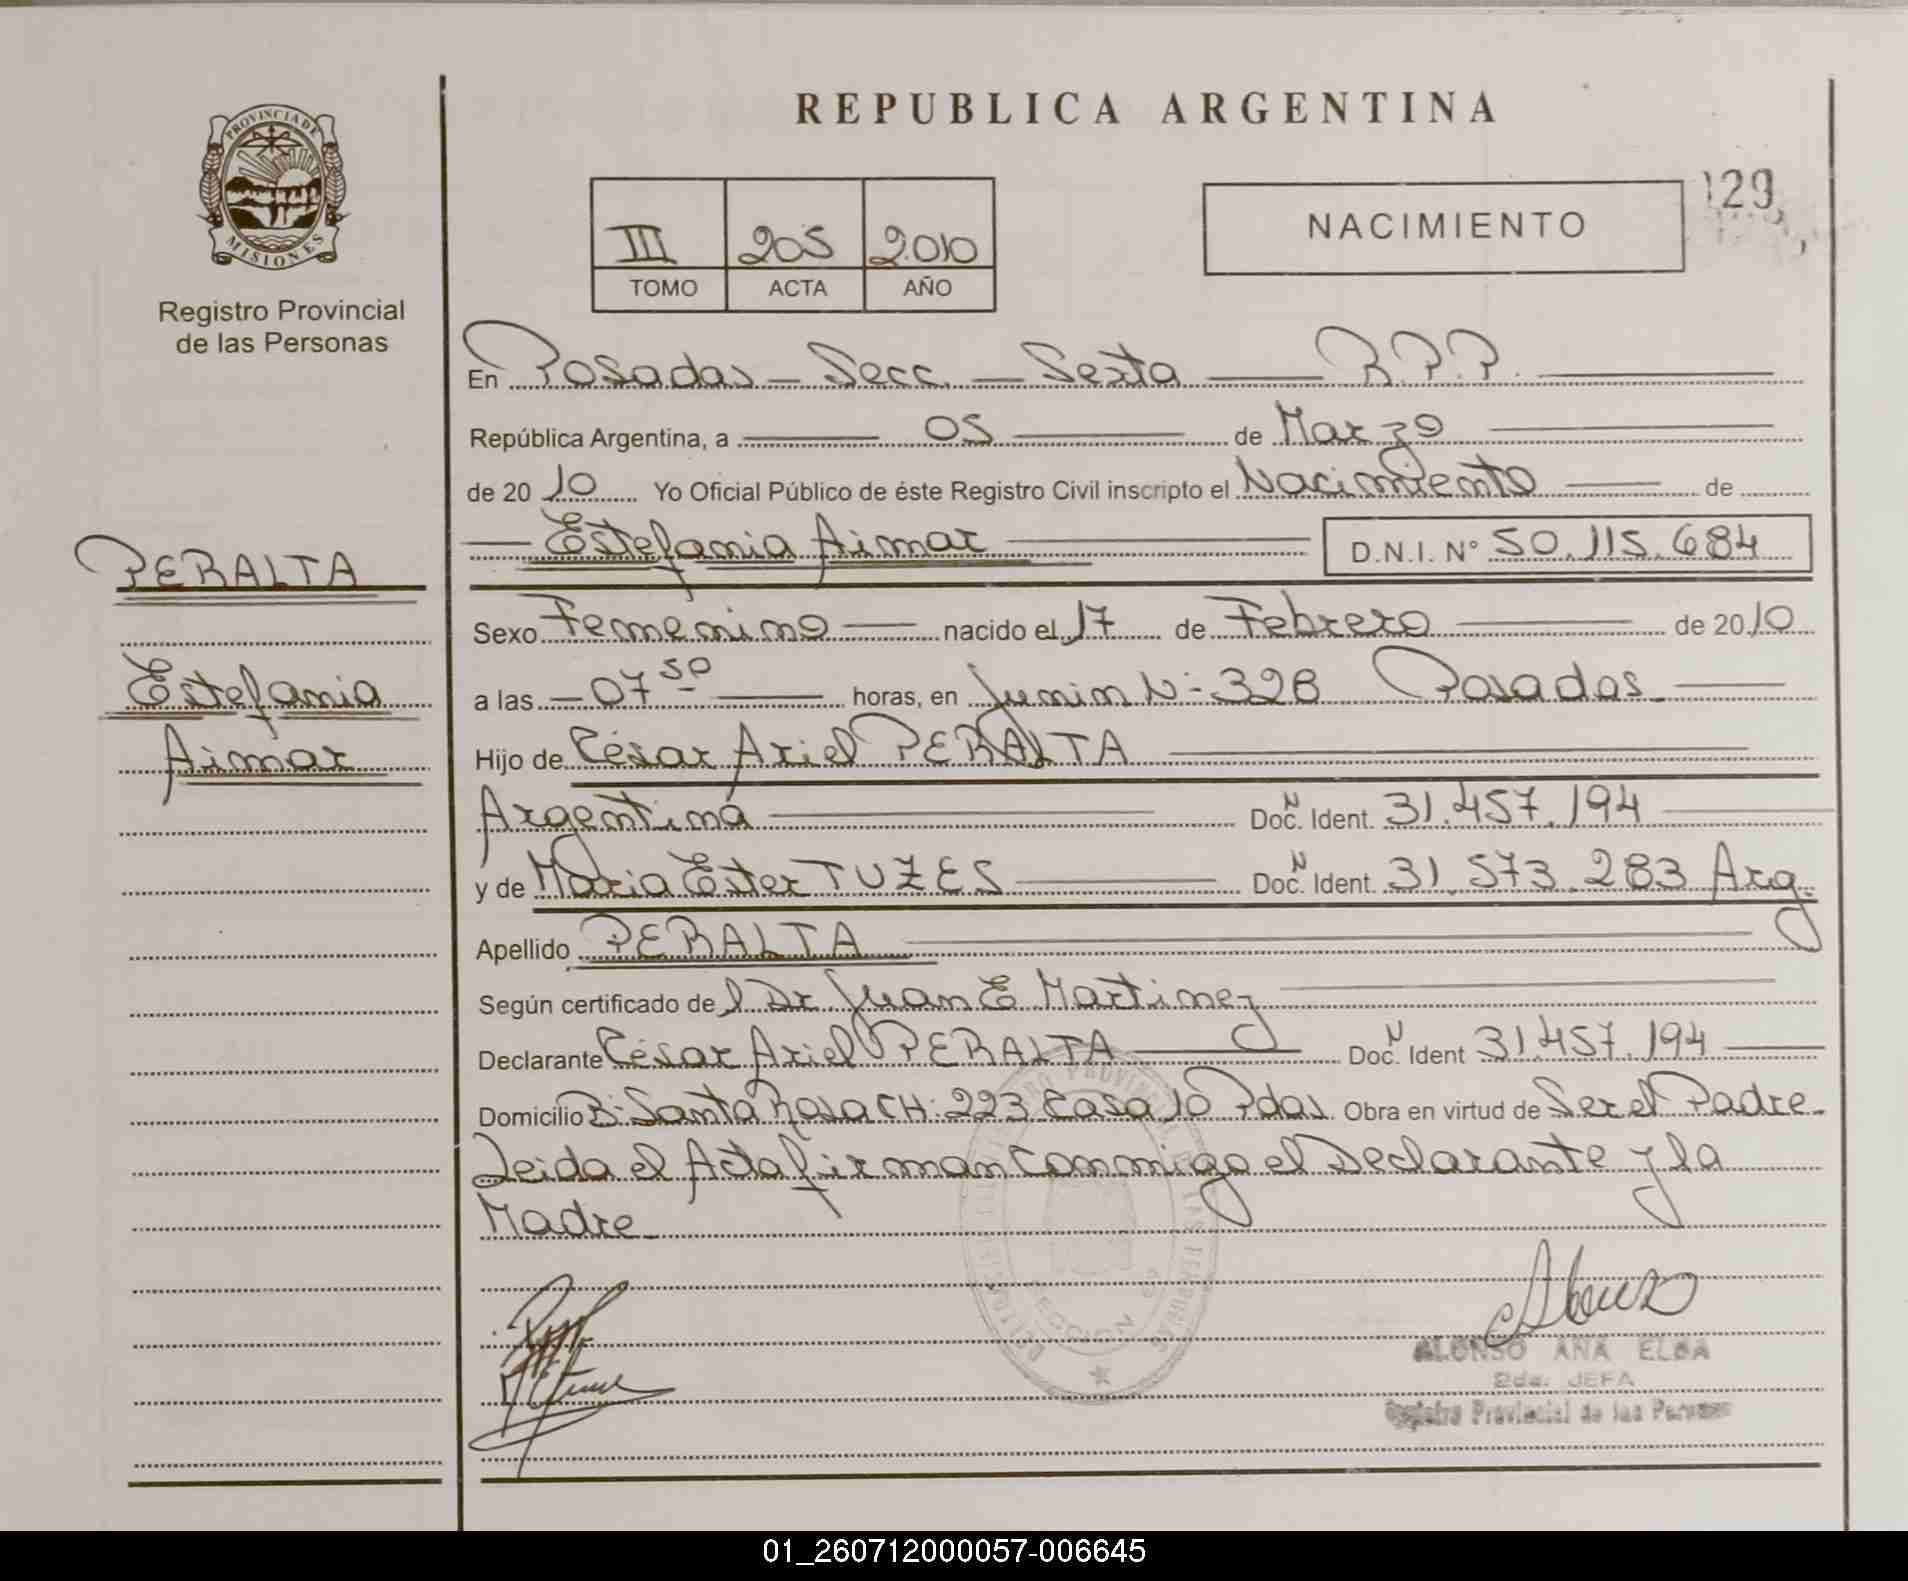 REPUBLICA ARGENTINA
PROVINCIA DE
MISIONES
Registro Provincial
de las Personas
III 205 2.010
TOMO ACTA AÑO
NACIMIENTO
129
En Posadas - Secc. - Sexta - R.P.P.
República Argentina, a 05 de Marzo
de 20 10 Yo Oficial Público de éste Registro Civil inscripto el Nacimiento de
Estefania Aimar D.N.I. N° 50.115.684
PERALTA
Estefania
Aimar
Sexo Femenino nacido el 17 de Febrero de 20 10
a las 07 50 horas, en Junin N° 328 Posadas
Hijo de César Ariel PERALTA
Argentina Doc. N Ident. 31.457.194
y de Maria Ester TUZES Doc. N Ident. 31.573.283 Arg.
Apellido PERALTA
Según certificado de l Dr Juan E Martinez
Declarante César Ariel PERALTA Doc. N Ident 31.457.194
Domicilio B: Santa Rosa CH: 223 Casa 10 Pdas. Obra en virtud de Ser el Padre.
Leida el Acta firman conmigo el Declarante y la
Madre
SECCION 6ª
ALONSO ANA ELBA
2da. JEFA
Registro Provincial de las Personas
01_260712000057-006645